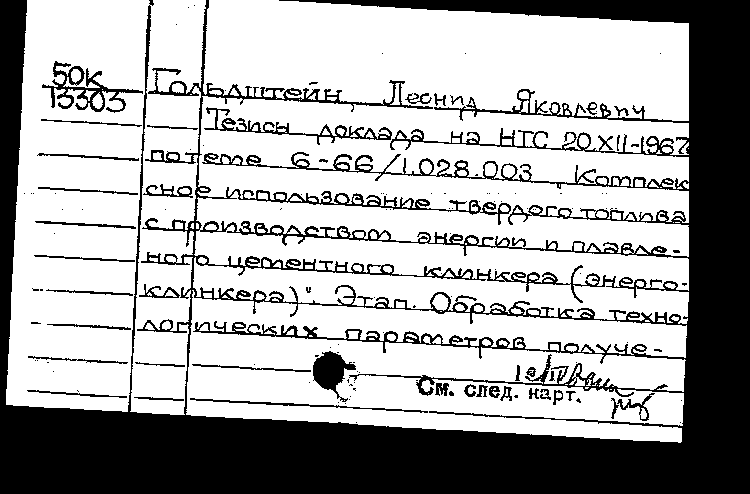 50к
13303
Гольдштейн, Леонид Яковлевич
Тезисы доклада на НТС 20.XII-1967
по теме 6-66/1.028.003 „Комплек
сное использование твердого топлива
с производством энергии и плавле-
ного цементного клинкера (энерго-
клинкера)". Этап. Обработка техно-
логических параметров получе-
См. след. карт.